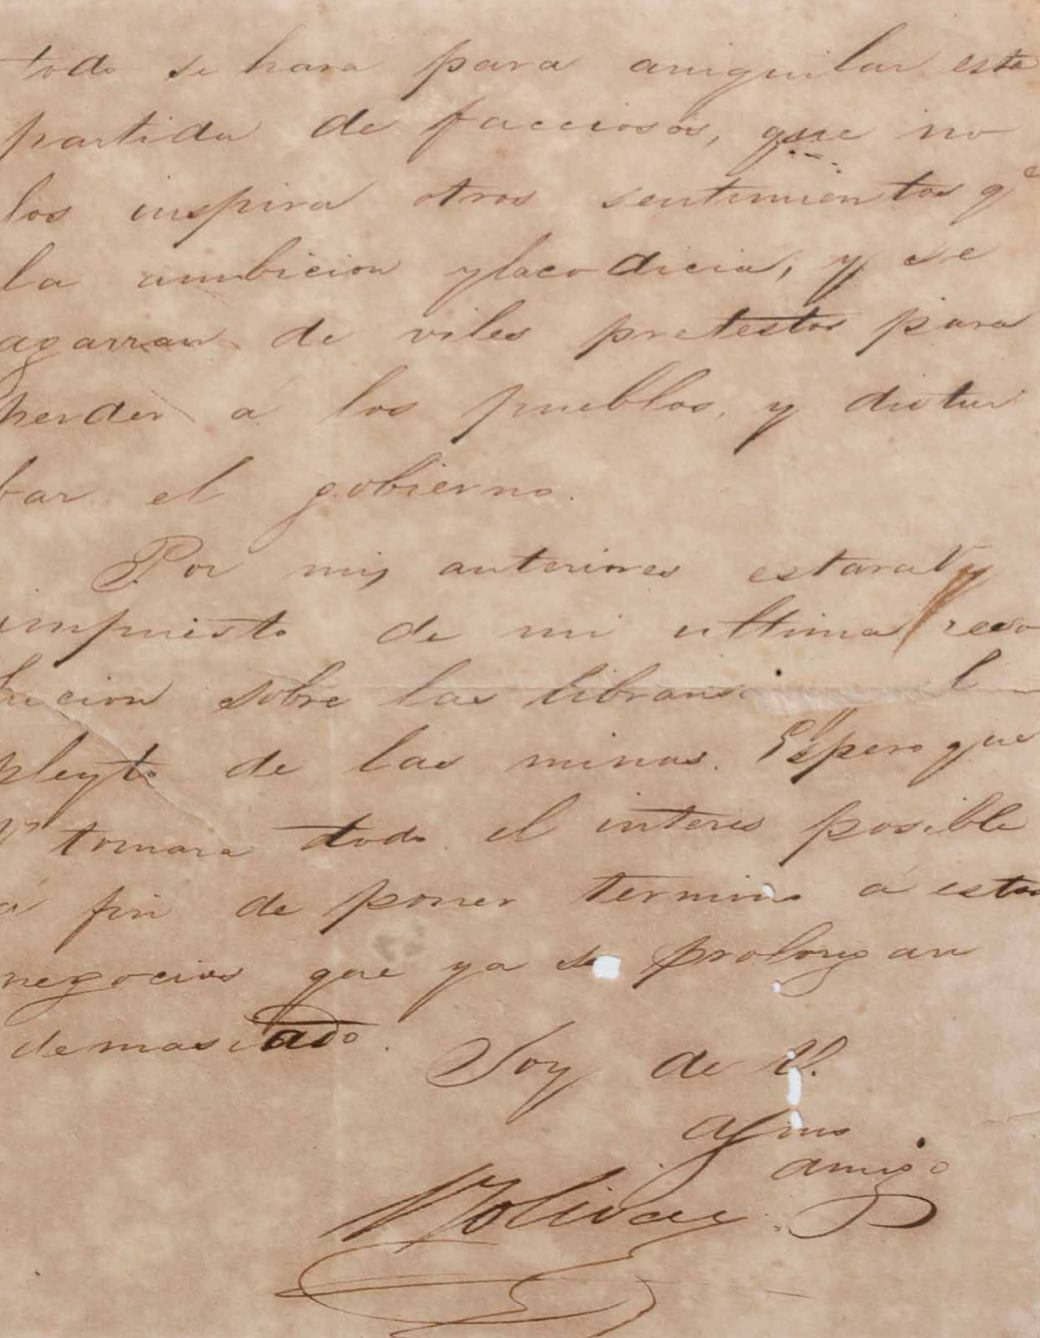 todo se hara para aniquilar esta
partida de facciosos, que no
los inspira otros sentimientos qe
la ambicion ylacodicia, y se
agarran de viles pretestos para
perder á los pueblos, y distur
bar el gobierno.
Por mis anteriores estara V
impuesto de mi ultima reso
lucion sobre las libransa l
pleyto de las minas. Espero que
V tomara todo el interes posible
á fin de poner termino á estos
negocios que ya se prolongan
demasiado.
Soy de V.
afmo
amigo
Bolivar